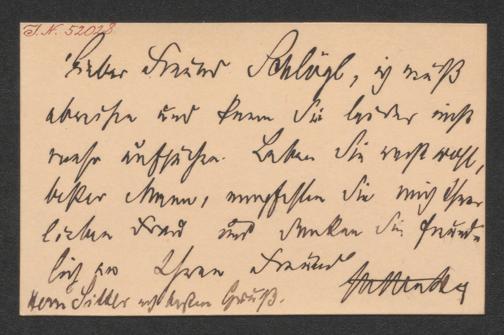 I.N. 52028
Lieber Freund Schlögl, ich muß
abreisen und kann Sie leider nicht
mehr aufsuchen. Leben Sie recht wohl,
bester Mann, empfehlen Sie mich Ihrer
lieben Frau und denken Sie freund-
lich an Ihren Freund
Herrn Sitter
besten Gruß.